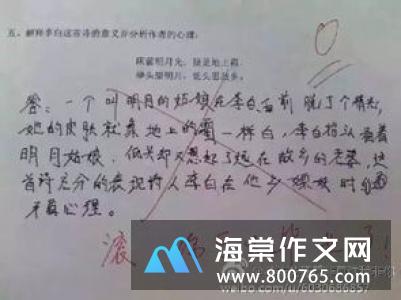 五、解释李白这首诗的意义并分析作者的心理:
床前明月光,疑是地上霜。
举头望明月,低头思故乡。
0
答:一个叫明月的姑娘在李白面前脱了个精光,
她的皮肤就象地上的霜一样白,李白抬头看着
明月姑娘,低头却又想起了远在故乡的老婆,这
首诗充分的表现诗人李白在他乡嫖妓时的
矛盾心理。
滚
海棠作文网
www.800765.com
weibo.com/u/6030686857